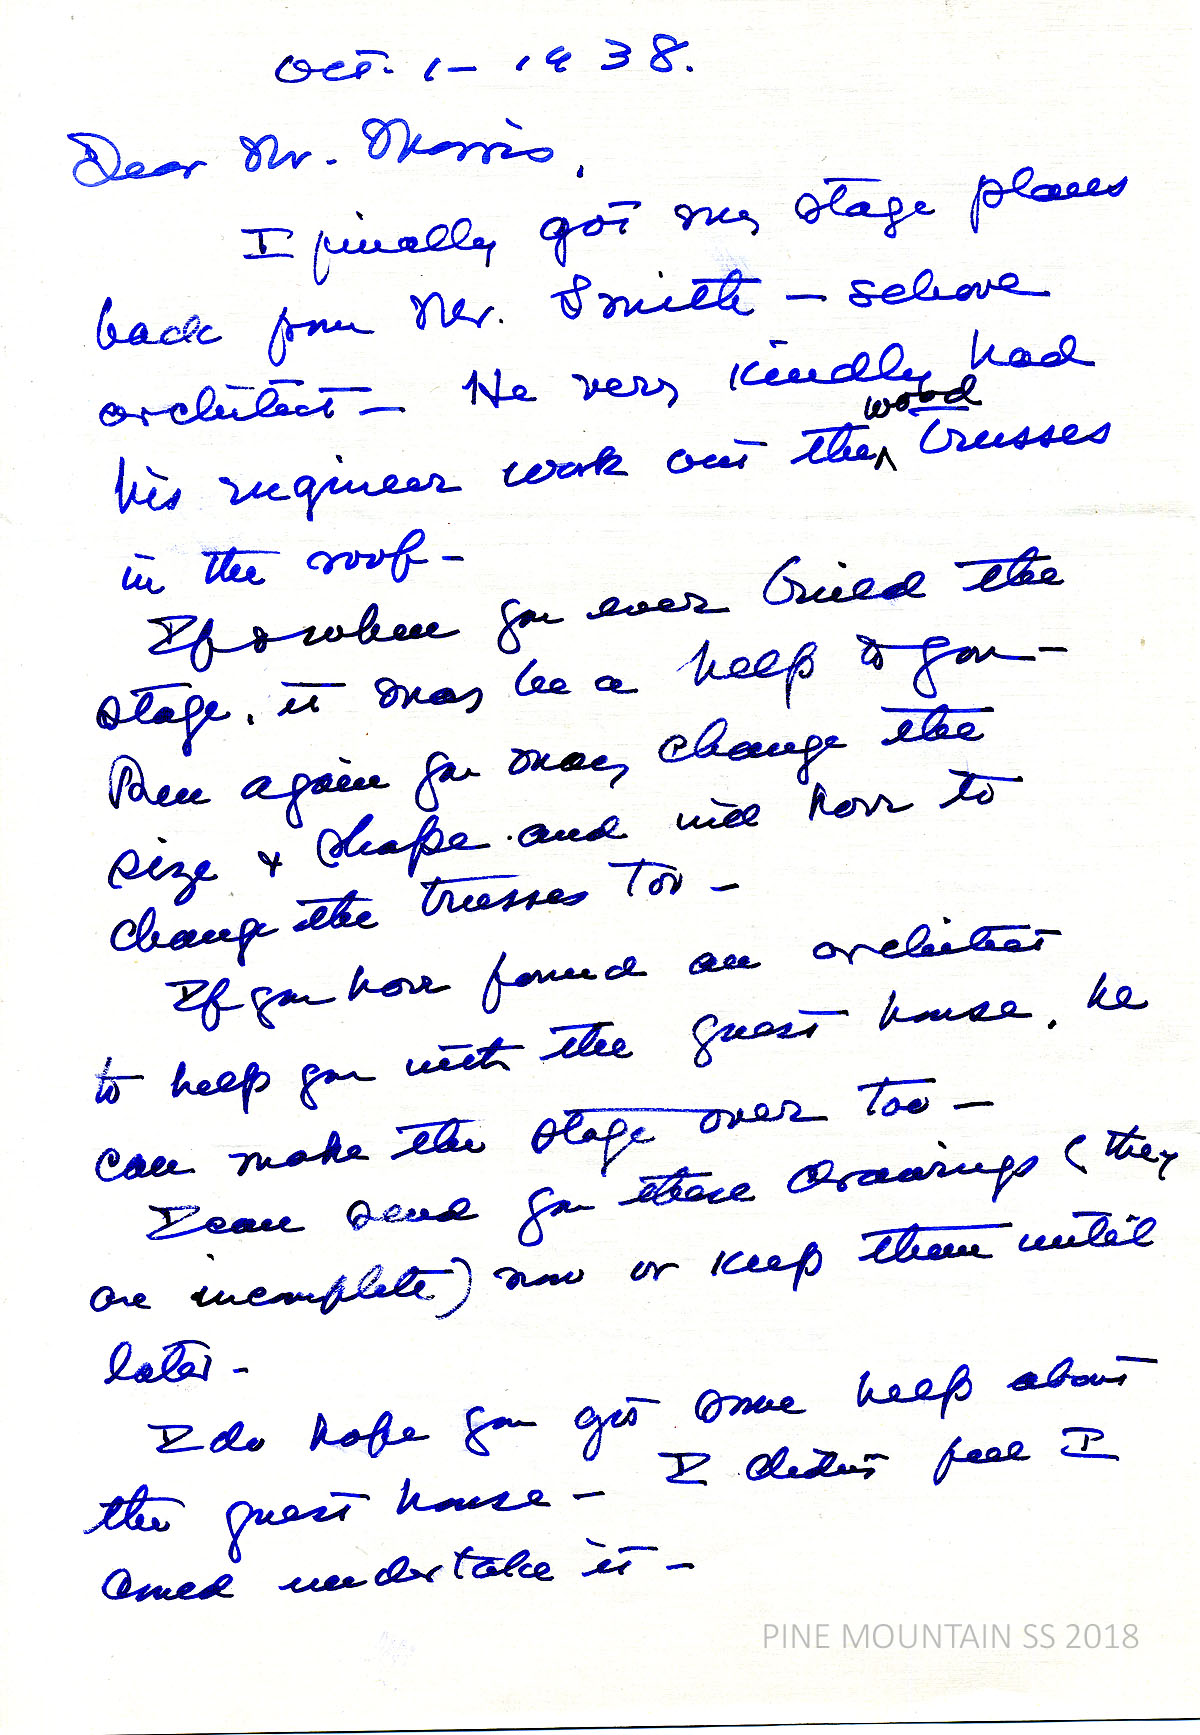 Oct. 1 - 1938.
Dear Mr. Morris,
I finally got my stage plans
back from Mr. Smith - school
architect - He very kindly had
his engineer work out the wood trusses
in the roof -
If & when you ever build the
stage, it may be a help to you -
Then again you may change the
size & shape and will have to
change the trusses too -
If you have found an architect
to help you with the guest house, he
can make the stage over too -
I can send you these drawings (they
are incomplete) now or keep them until
later -
I do hope you get some help about
the guest house - I didn't feel I
could undertake it -
PINE MOUNTAIN SS 2018